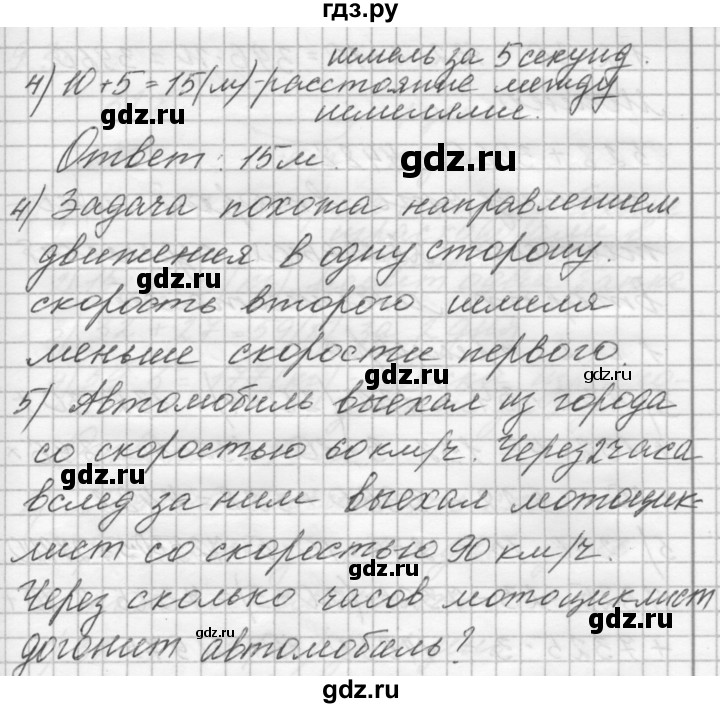 гдз.ру
шмель за 5 секунд.
4) 10+5=15(м)-расстояние между
шмелями.
gdz.ru
Ответ: 15м.
gdz.ru
4) Задача похожа направлением
движения в одну сторону.
gdz.ru
скорость второго шмеля
меньше скорости первого.
gdz.ru
gdz.ru
5) Автомобиль выехал из города
со скоростью 60км/ч. Через 2 часа
gdz.ru
вслед за ним выехал мотоцик-
лист со скоростью 90 км/ч.
gdz.ru
Через сколько часов мотоциклист
gdz.ru
gdz.ru
догонит автомобиль?
gdz.ru